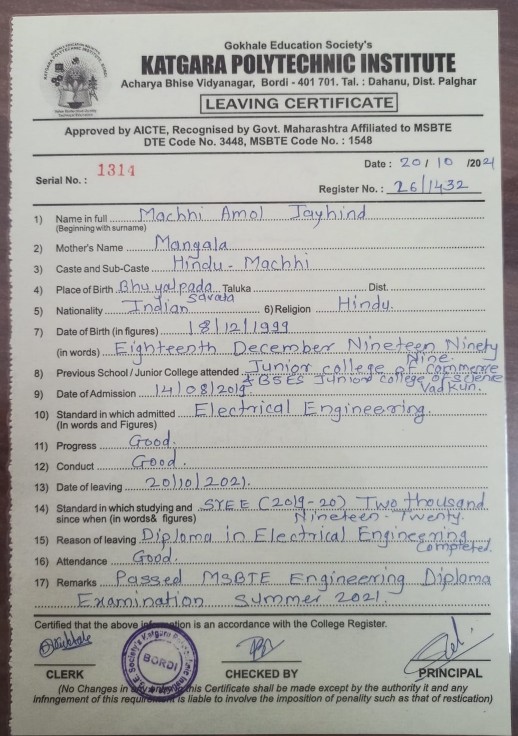 Gokhale Education Society's
KATGARA POLYTECHNIC INSTITUTE
Acharya Bhise Vidyanagar, Bordi - 401 701. Tal. : Dahanu, Dist. Palghar
LEAVING CERTIFICATE
Approved by AICTE, Recognised by Govt. Maharashtra Affiliated to MSBTE
DTE Code No. 3448, MSBTE Code No. : 1548
Date : 20 / 10 /2021
Serial No. : 1314
Register No. : 26/1432
1) Name in full Machhi Amol Jayhind
(Beginning with surname)
2) Mother's Name Mangala
3) Caste and Sub-Caste Hindu - Machhi
4) Place of Birth Bhuyalpada Taluka Dist.
Savata
5) Nationality Indian 6) Religion Hindu.
7) Date of Birth (in figures) 18/12/1999
(in words) Eighteenth December Nineteen Ninety
Nine.
8) Previous School / Junior College attended Junior college of commerce
& BSES Junior college of science
Vadkun.
9) Date of Admission 14/08/2019
10) Standard in which admitted Electrical Engineering.
(In words and Figures)
11) Progress Good.
12) Conduct Good.
13) Date of leaving 20/10/2021.
14) Standard in which studying and SYEE (2019-20) Two thousand
since when (in words& figures) Nineteen-Twenty.
15) Reason of leaving Diploma in Electrical Engineering
Completed.
16) Attendance Good.
17) Remarks Passed MSBTE Engineering Diploma
Examination Summer 2021.
Certified that the above information is an accordance with the College Register.
BORDI
CLERK CHECKED BY PRINCIPAL
(No Changes in any entry in this Certificate shall be made except by the authority it and any
infnngement of this requirement is liable to involve the imposition of penality such as that of restication)